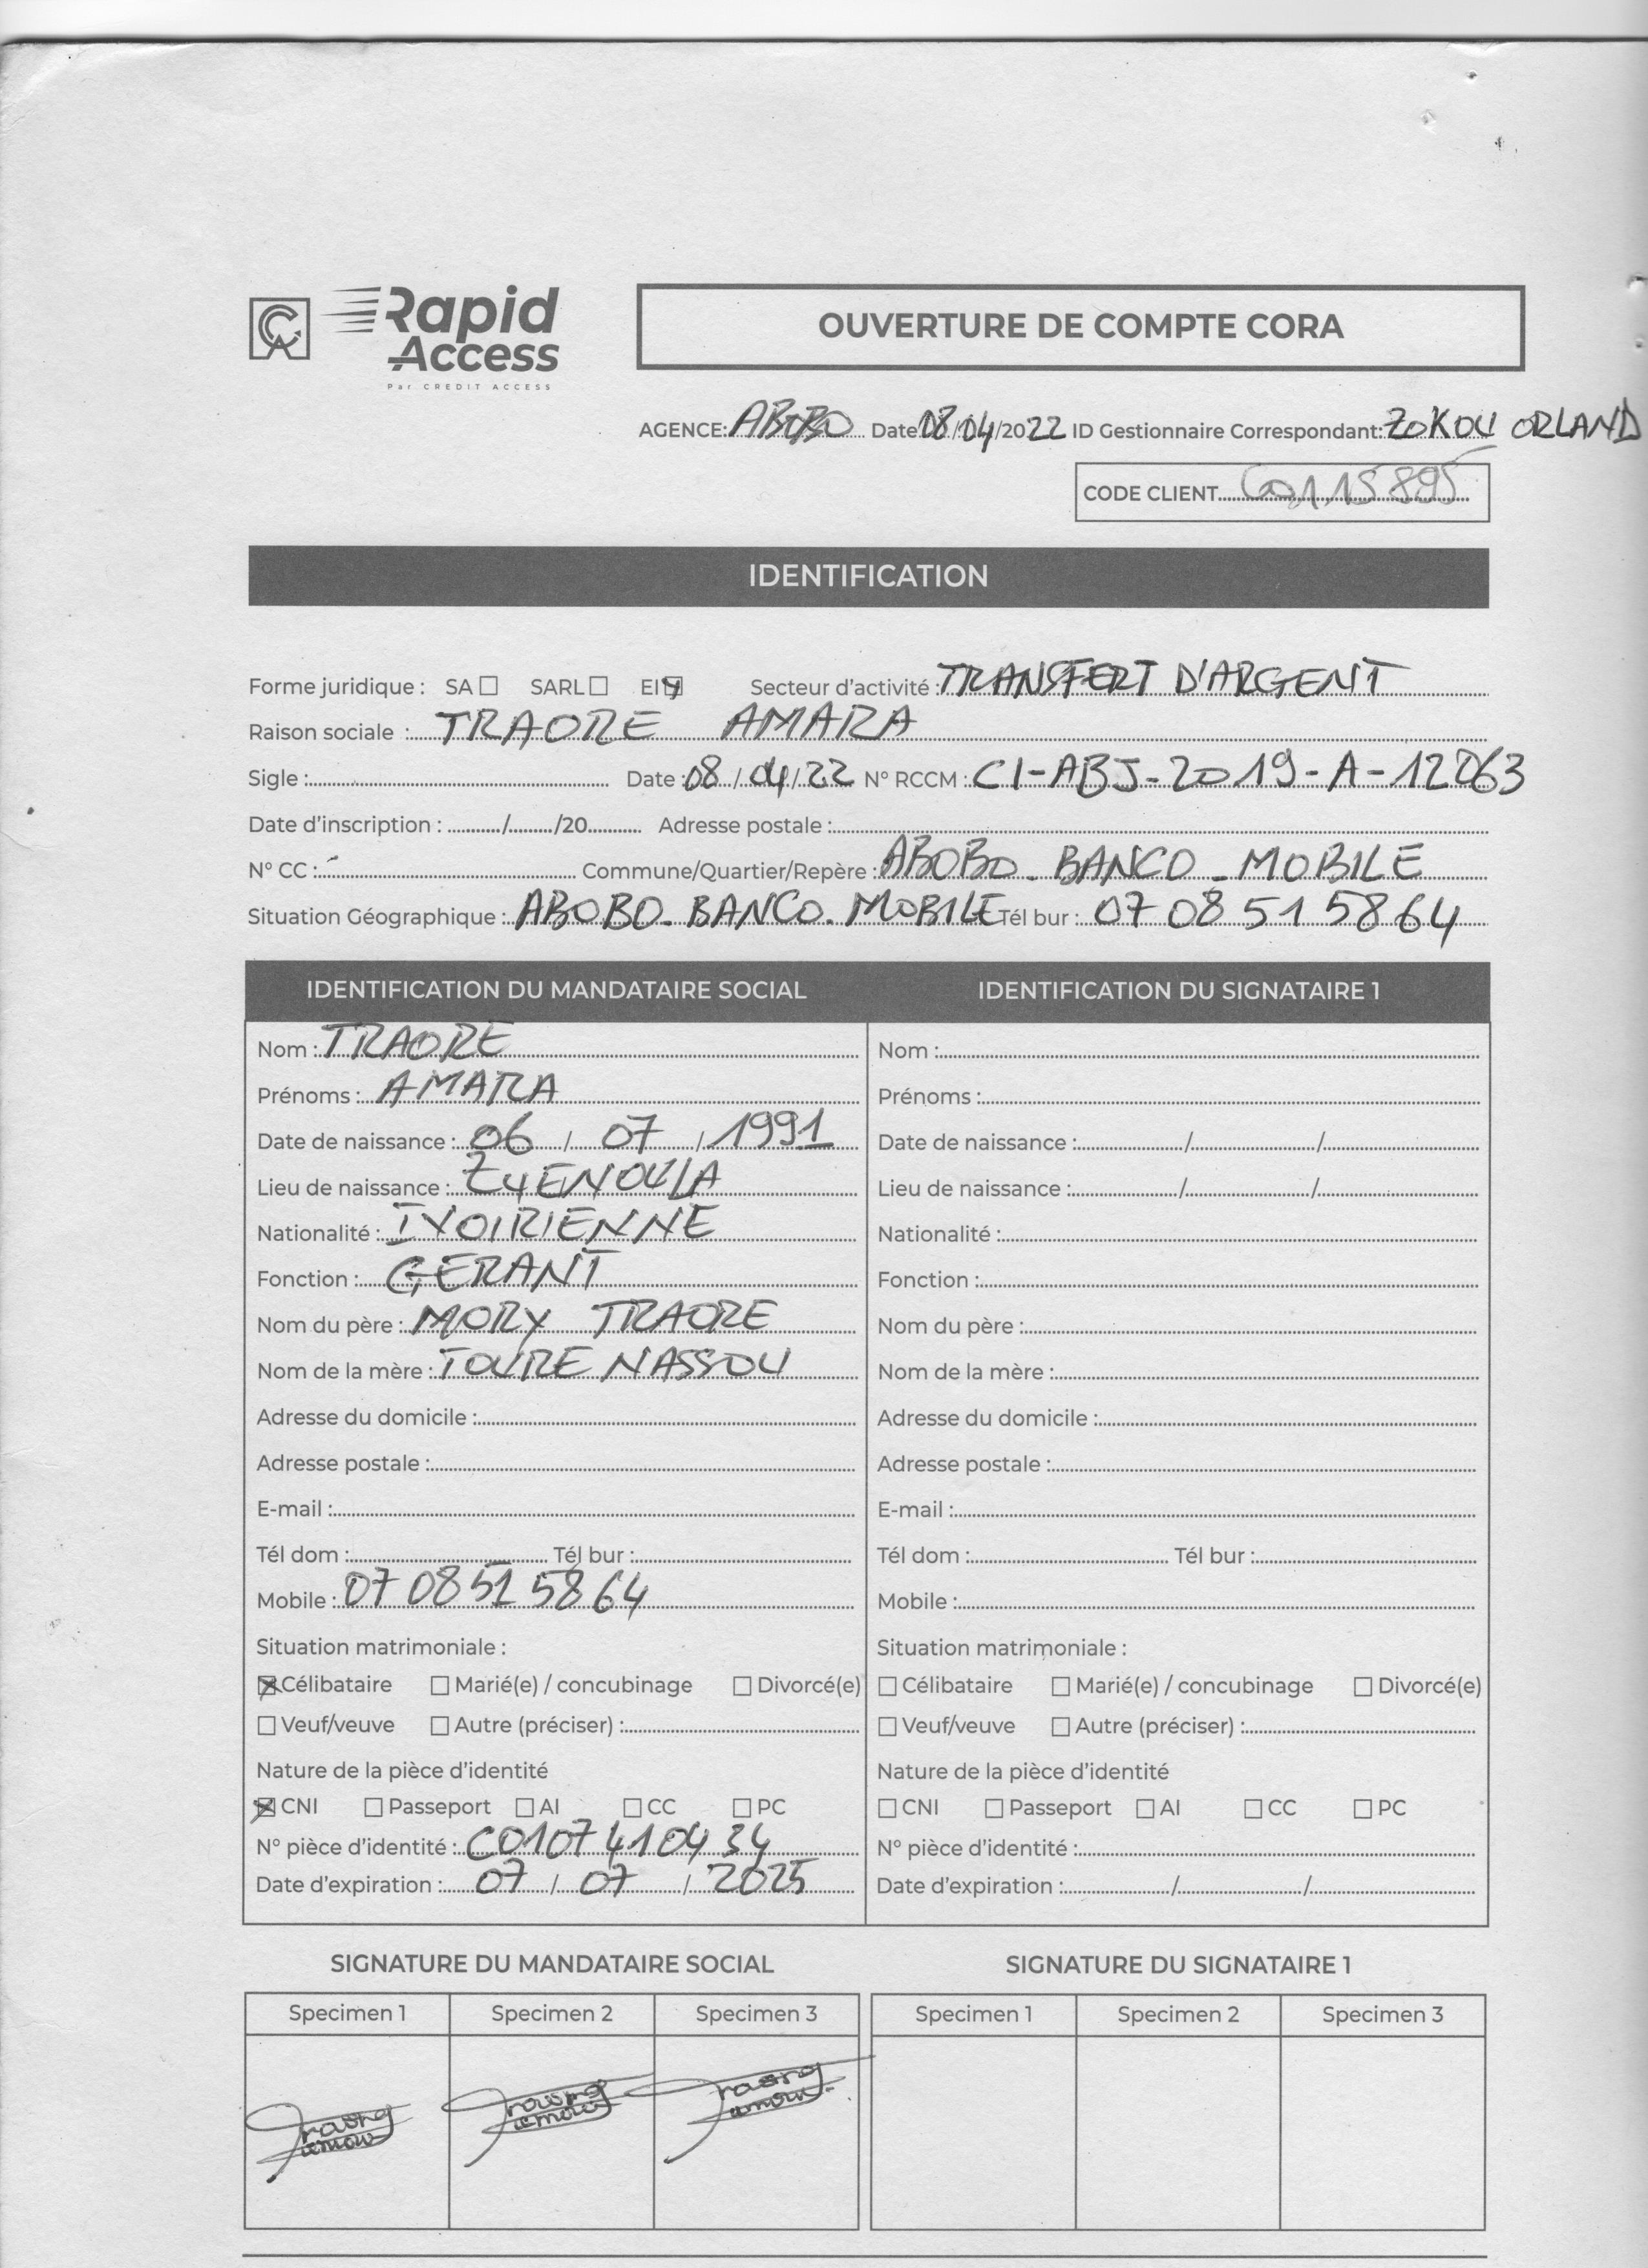 CA Rapid Access
Par CREDIT ACCESS
OUVERTURE DE COMPTE CORA
AGENCE: ABOBO Date 08/04/2022 ID Gestionnaire Correspondant: ZOKOU ORLAND
CODE CLIENT 00115895
IDENTIFICATION
Forme juridique : SA ☐ SARL ☐ EI ☒ Secteur d'activité : TRANSFERT D'ARGENT
Raison sociale : TRAORE AMARA
Sigle : Date : 08/04/22 N° RCCM : CI-ABJ-2019-A-12063
Date d'inscription : / /20 Adresse postale :
N° CC : Commune/Quartier/Repère : ABOBO - BANCO - MOBILE
Situation Géographique : ABOBO. BANCO. MOBILE Tél bur : 07 08 51 58 64
IDENTIFICATION DU MANDATAIRE SOCIAL
Nom : TRAORE
Prénoms : AMARA
Date de naissance : 06 / 07 / 1991
Lieu de naissance : ZUENOULA
Nationalité : IVOIRIENNE
Fonction : GERANT
Nom du père : MORY TRAORE
Nom de la mère : TOURE NASSOU
Adresse du domicile :
Adresse postale :
E-mail :
Tél dom : Tél bur :
Mobile : 07 08 51 58 64
Situation matrimoniale :
☒ Célibataire ☐ Marié(e) / concubinage ☐ Divorcé(e)
☐ Veuf/veuve ☐ Autre (préciser) :
Nature de la pièce d'identité
☒ CNI ☐ Passeport ☐ AI ☐ CC ☐ PC
N° pièce d'identité : C0107410434
Date d'expiration : 07 / 07 / 2025
IDENTIFICATION DU SIGNATAIRE 1
Nom :
Prénoms :
Date de naissance : / /
Lieu de naissance : / /
Nationalité :
Fonction :
Nom du père :
Nom de la mère :
Adresse du domicile :
Adresse postale :
E-mail :
Tél dom : Tél bur :
Mobile :
Situation matrimoniale :
☐ Célibataire ☐ Marié(e) / concubinage ☐ Divorcé(e)
☐ Veuf/veuve ☐ Autre (préciser) :
Nature de la pièce d'identité
☐ CNI ☐ Passeport ☐ AI ☐ CC ☐ PC
N° pièce d'identité :
Date d'expiration : / /
SIGNATURE DU MANDATAIRE SOCIAL
Specimen 1 Specimen 2 Specimen 3
SIGNATURE DU SIGNATAIRE 1
Specimen 1 Specimen 2 Specimen 3